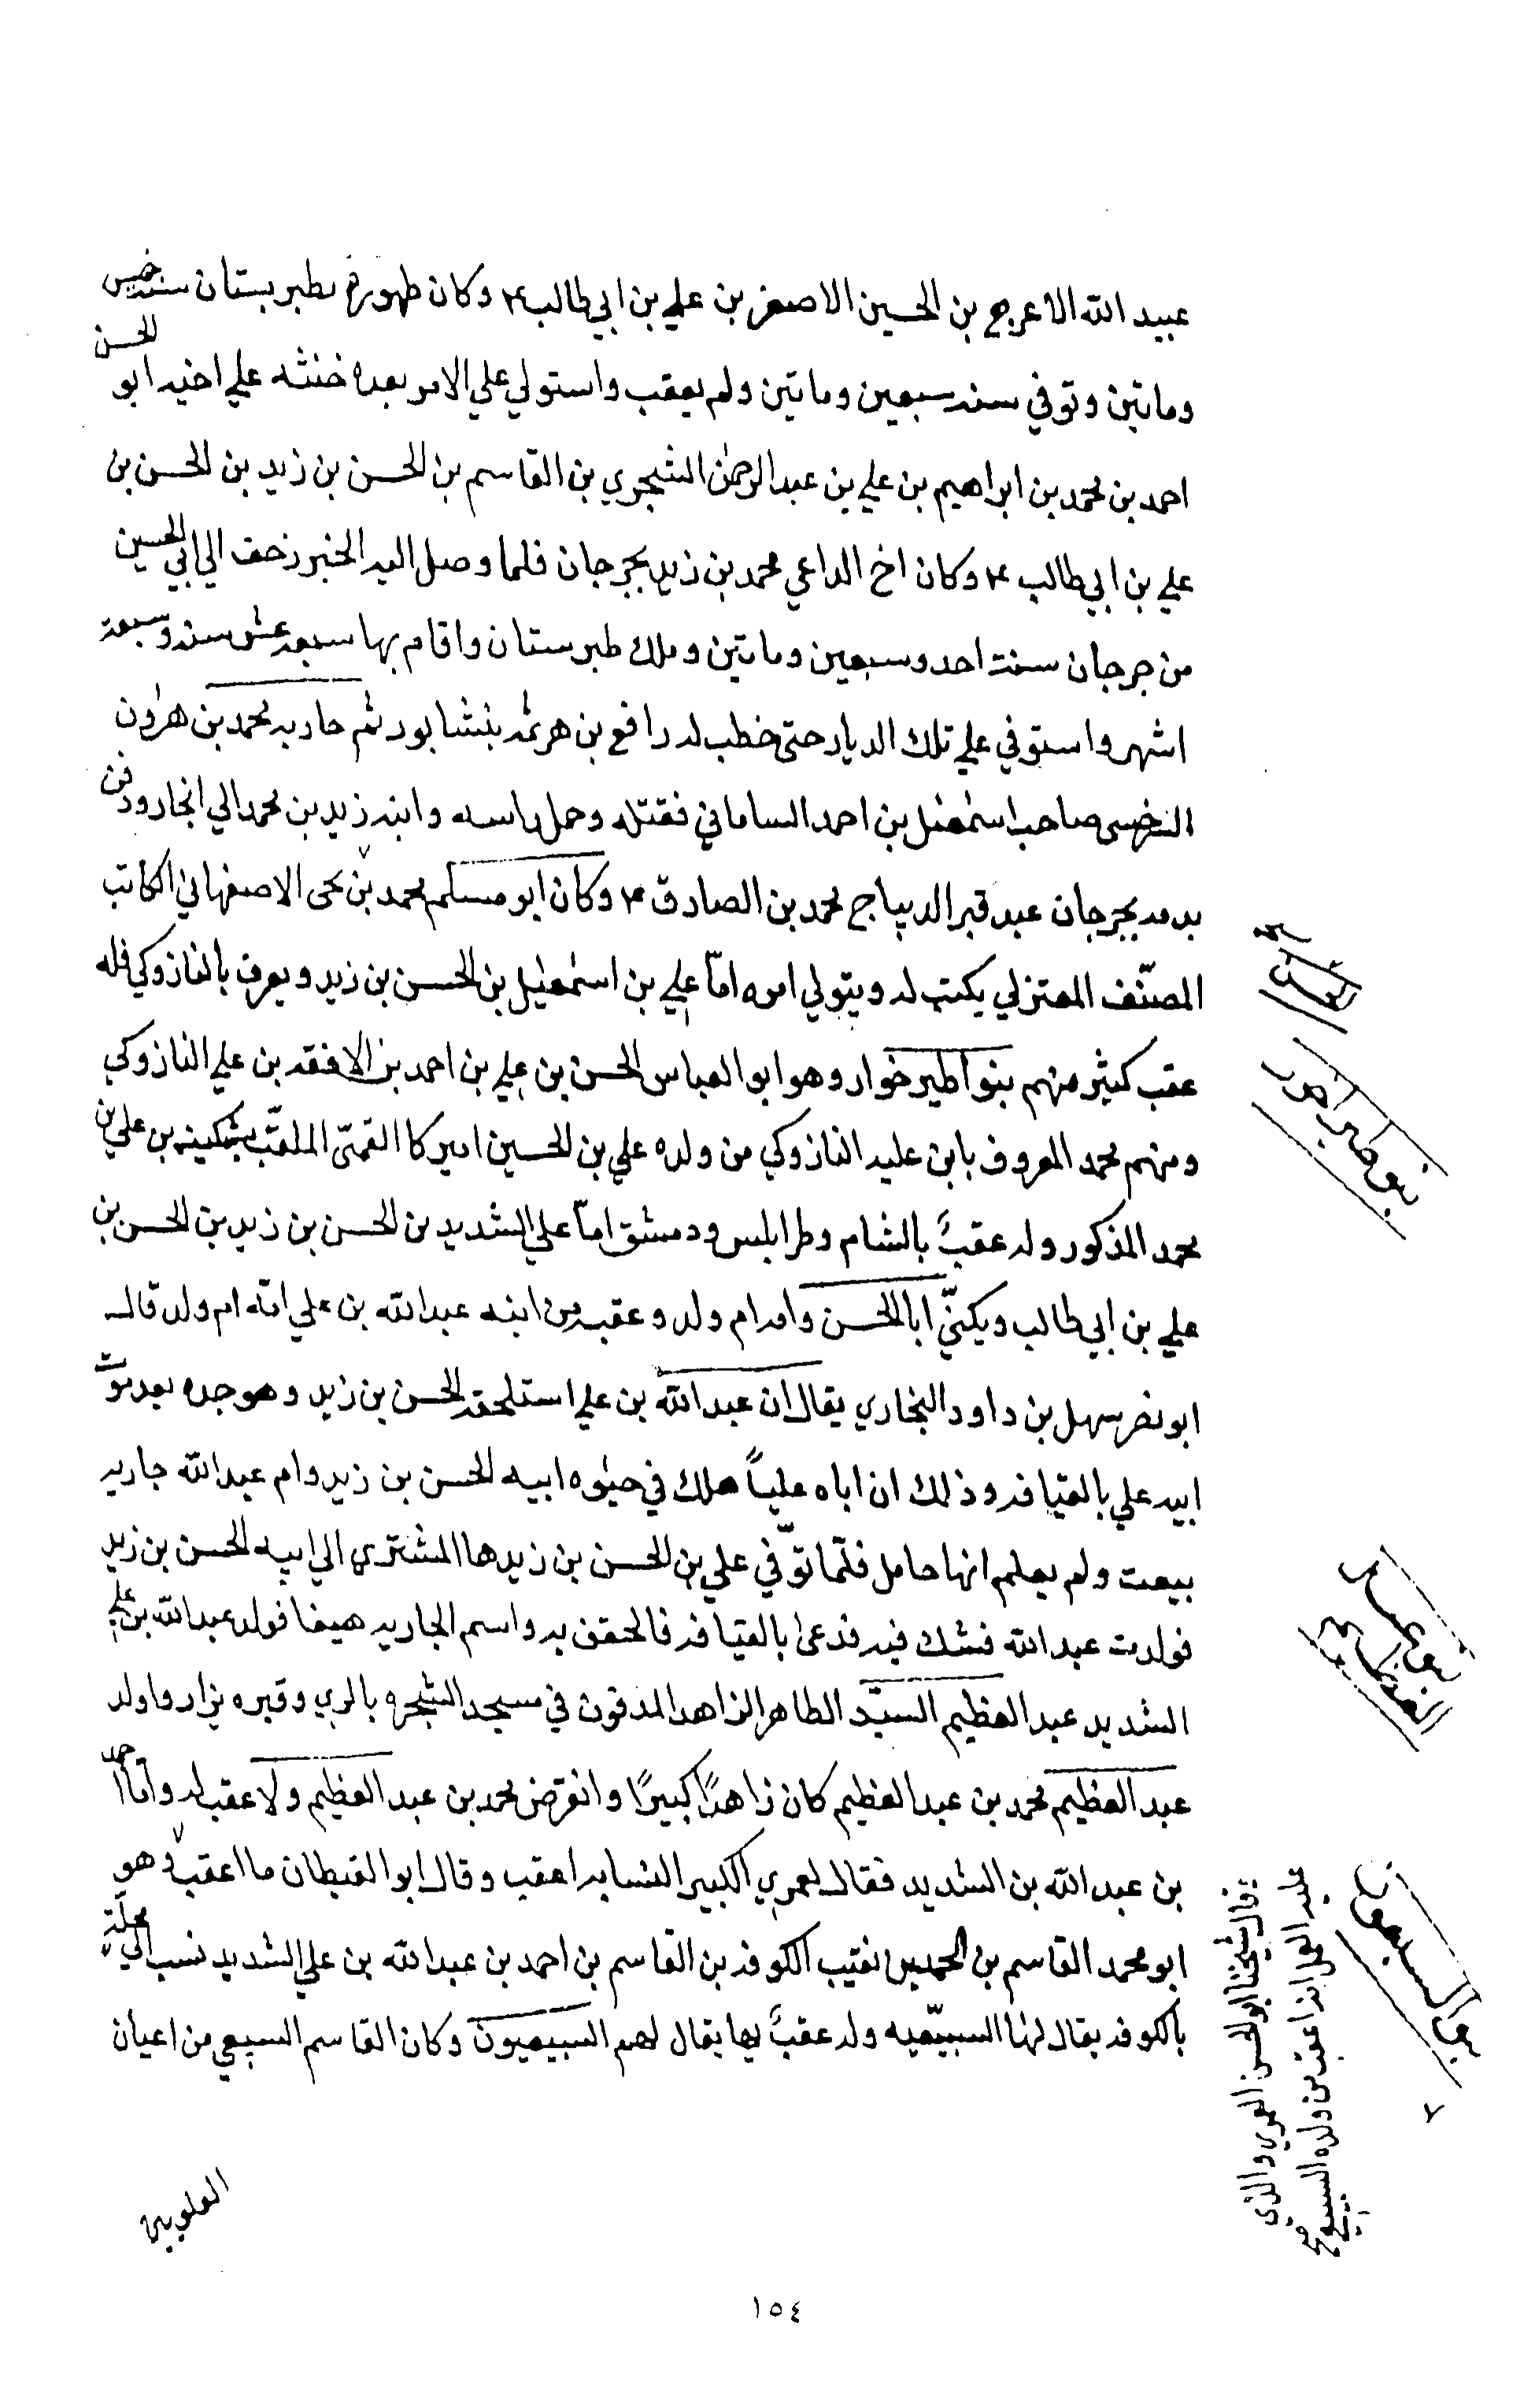 عبيد الله الاعرج بن الحسين الاصغر بن علي بن ابي طالب ع وكان ظهوره بطبرستان سنة خمس
وماتين وتوفي سنه سبعين وماتين ولم يعقب واستولي علي الامر بعده ختنه علي اخته ابو الحسن
احمد بن محمد بن ابراهيم بن علي بن عبد الرحمن الشجري بن القاسم بن الحسن بن زيد بن الحسن بن
علي بن ابي طالب ع وكان اخ الداعي محمد بن زيد بجرجان فلما وصل اليه الخبر زحف الي ابي الحسين
من جرجان سنة احد وسبعين وماتين وملك طبرستان واقام بها سبعه عشر سنه وسبعة
اشهر واستوفي علي تلك الديار حتى خطب له رافع بن هرثمه بنيشابور ثم حاربه محمد بن هرون
السرخسي صاحب اسمعيل بن احمد الساماني فقتله وحمل راسه وابنه زيد بن محمد الي بخارا ودفن
بدنه بجرجان عند قبر الديباج محمد بن الصادق ع وكان ابو مسلم محمد بن بحى الاصفهاني الكاتب
المصنّف المعتزلي يكتب له ويتولي امره امّا علي بن اسمعيل بن الحسن بن زيد ويعرف بالنازوكي فله
عقب كثير منهم بنو اطير خوار وهو ابو العباس الحسن بن علي بن احمد بن الافقه بن علي النازوكي
ومنهم محمد المعروف بابن عليه النازوكي من ولده علي بن الحسين اميركا القمّى الملقّب بشكينه بن علي بن
محمد المذكور وله عقبٌ بالشام وطرابلس ودمشق امّا علي الشديد بن الحسن بن زيد بن الحسن بن
علي بن ابي طالب ويكنّي ابا الحسن وامه ام ولد وعقبه من ابنه عبد الله بن علي امّه ام ولد قال
ابو نصر سهل بن داود البخاري يقال ان عبد الله بن علي استلحقه الحسن بن زيد وهو جده بعد موت
ابيه علي بالقيافه وذلك ان اباه علياً هلك في حيوه ابيه الحسن بن زيد وام عبد الله جاريه
بيعت ولم يعلم انها حامل فلمّا توّفي علي بن الحسن بن زيد ها المشتري الي ابيه الحسن بن زيد
فولدت عبد الله فشك فيه فدعى بالقيافه فالحقن به واسم الجاريه هيفا فولد عبد الله بن علي
الشديد عبد العظيم السيّد الطاهر الزاهد المدفون في مسجد الشجره بالري وقبره يزار واولد
عبد العظيم محمد بن عبد العظيم كان زاهدًا كبيرًا وانقرض محمد بن عبد العظيم ولا عقب له وامّا احمد
بن عبد الله بن الشديد فقال لعمري الكبير النسابه اعقب وقال ابو القيطان ما اعقب وهو
ابو محمد القاسم بن الحسين نقيب الكوفه بن القاسم بن احمد بن عبد الله بن علي الشديد نسب الي محلّة
بالكوفه يقال لها السبيّعيه وله عقبٌ بها يقال لهم السبيعيون وكان القاسم السبيعي من اعيان
العلويين
بنو عبد
العظيم ع
بنو السبيعون
قال شيخنا ابو الحسن العمري والذي
عليه العمل انه اعقب من ولده السبيعي
١٥٤